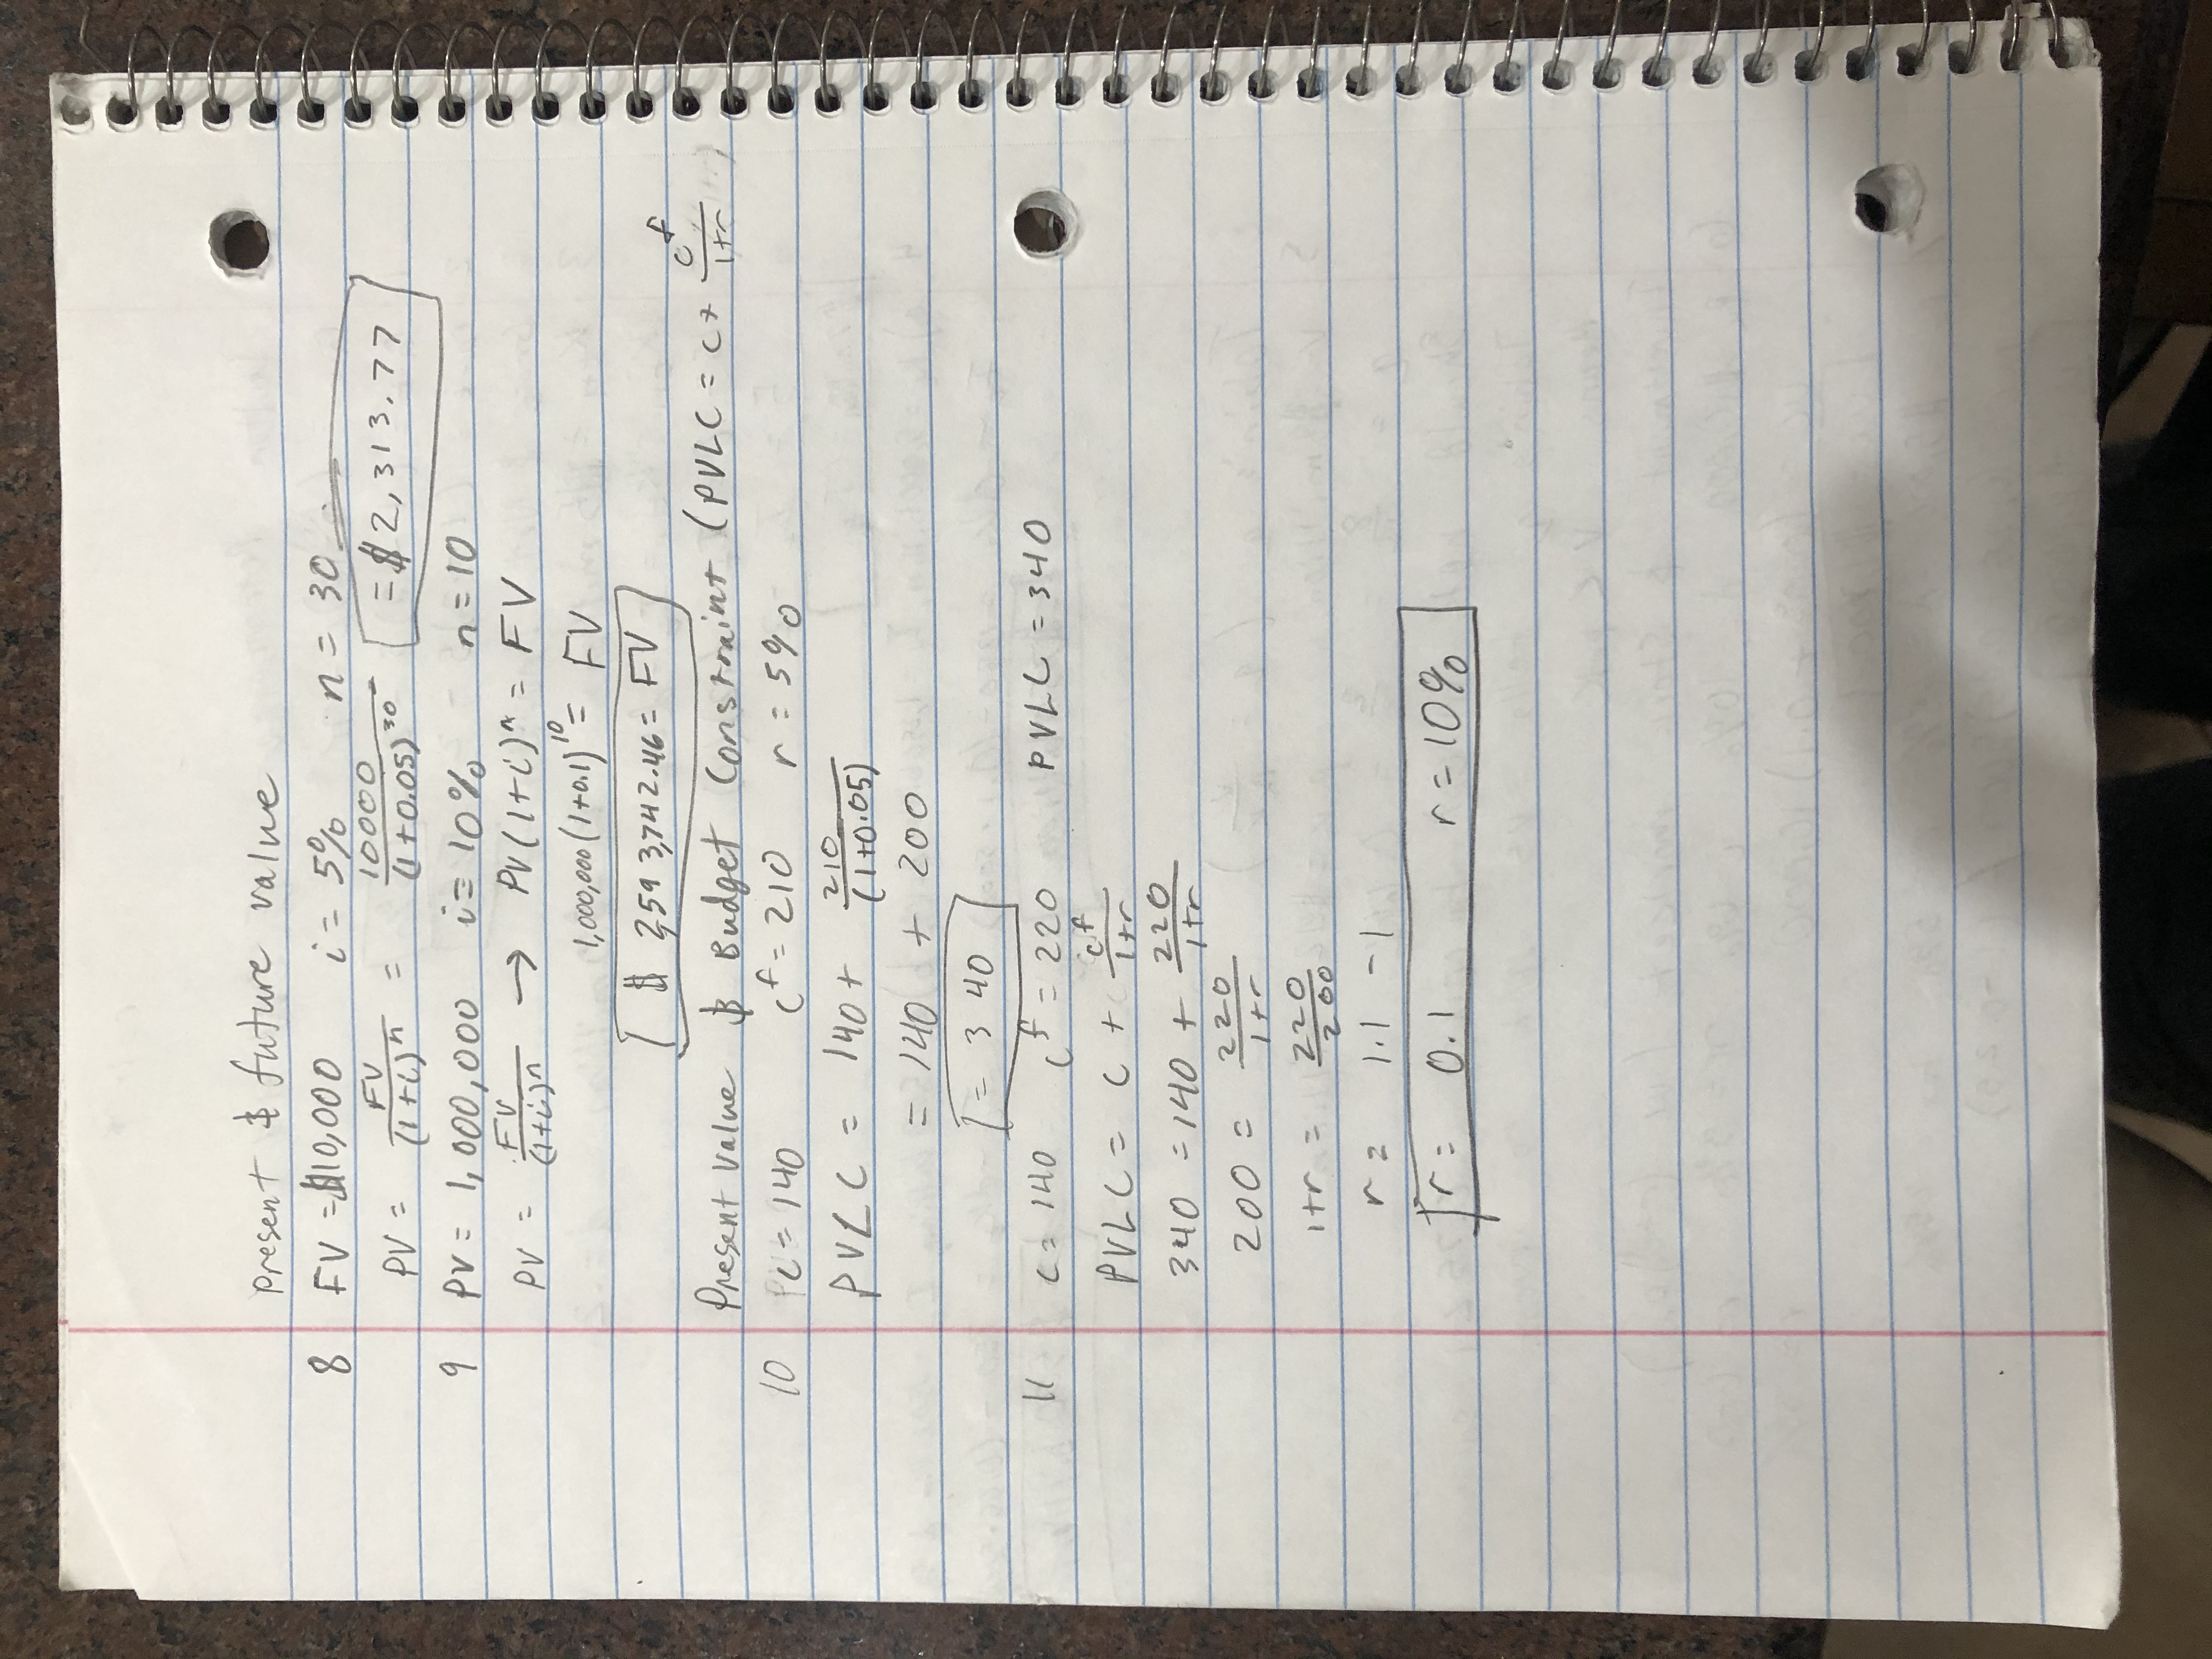 Present & future value
8 FV = $10,000 i = 5% n = 30
PV = FV/(1+i)^n = 10000/(1+0.05)^30 = $2,313.77
9 PV = 1,000,000 i = 10% n = 10
PV = FV/(1+i)^n → PV(1+i)^n = FV
1,000,000(1+0.1)^10 = FV
$ 2,593,742.46 = FV
Present Value & Budget Constraint (PVLC = c + c^f/1+r)
10 c = 140 c^f = 210 r = 5%
PVLC = 140 + 210/(1+0.05)
= 140 + 200
= 340
11 c = 140 c^f = 220 PVLC = 340
PVLC = c + c^f/1+r
340 = 140 + 220/1+r
200 = 220/1+r
1+r = 220/200
r = 1.1 - 1
r = 0.1 r = 10%